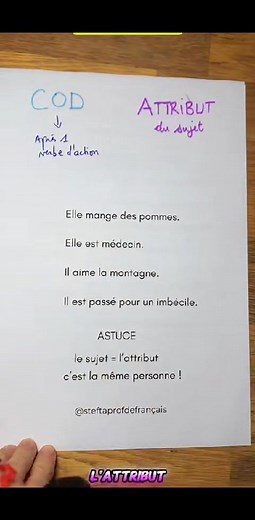 COD
ATTRIBUT
du sujet
↓
Après 1
verbe d'action
Elle mange des pommes.
Elle est médecin.
Il aime la montagne.
Il est passé pour un imbécile.
ASTUCE
le sujet = l'attribut
c'est la même personne !
@steftaprofdefrançais
L'ATTRIBUT